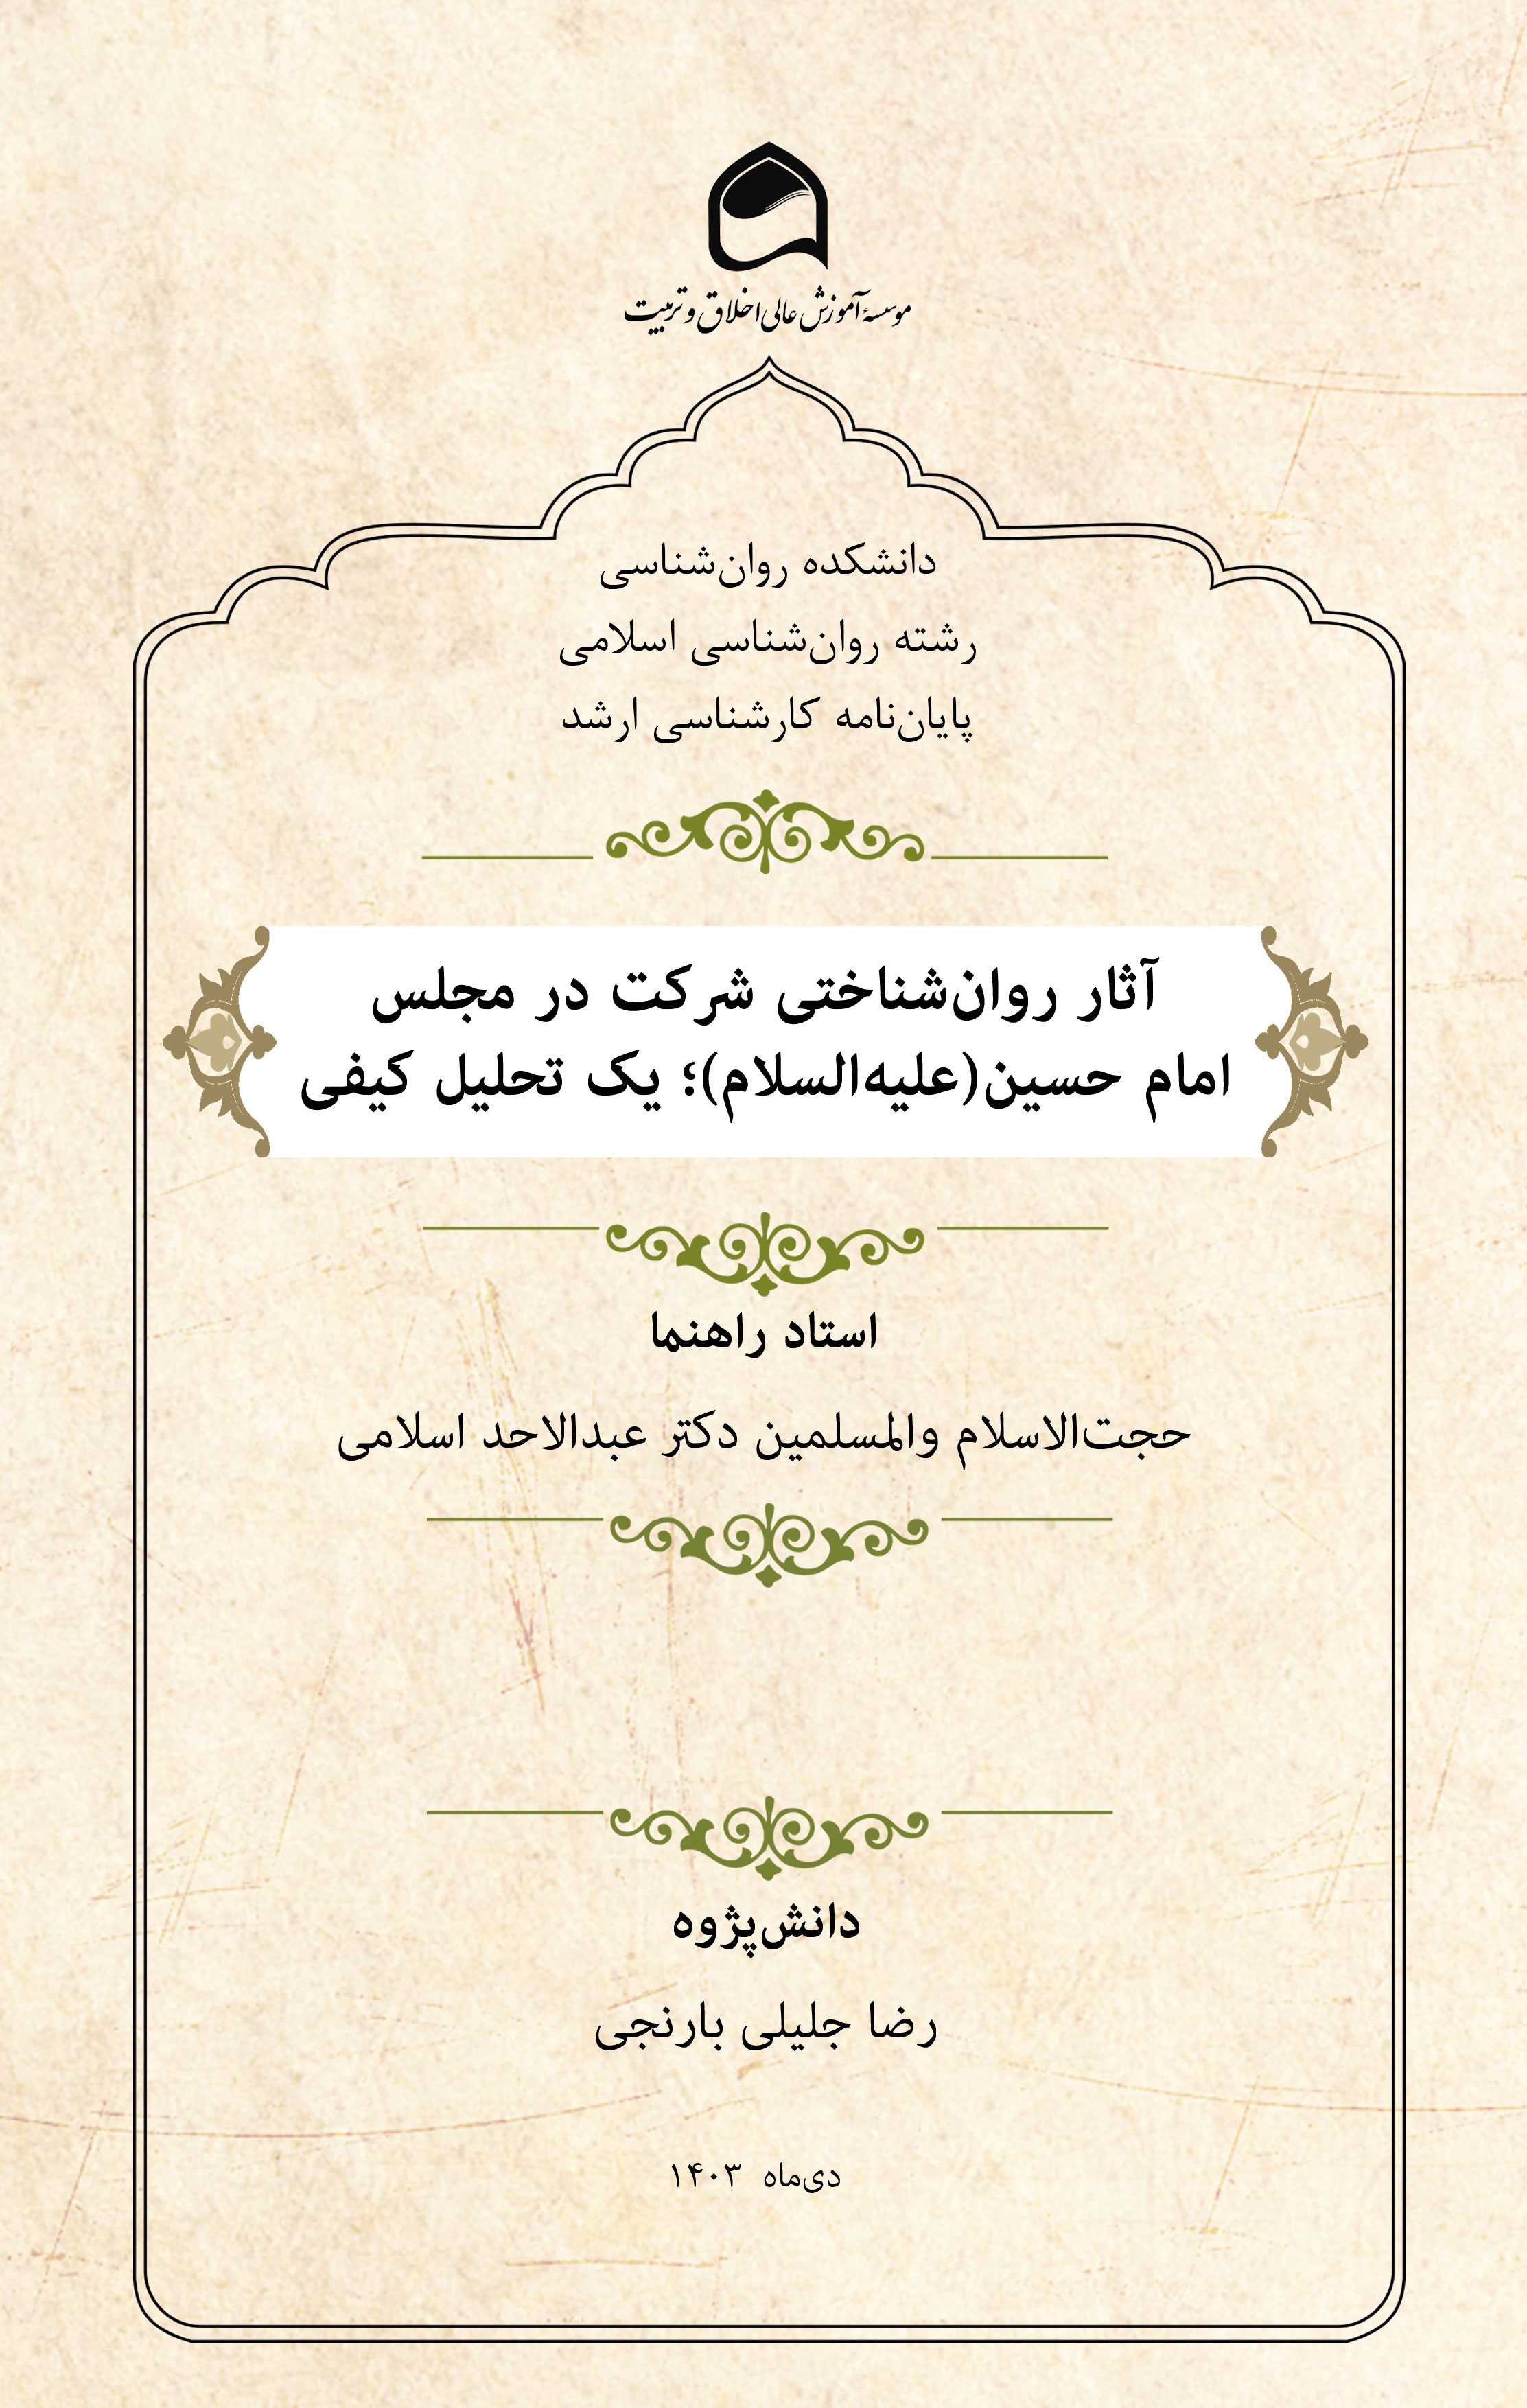 موسسهٔ آموزش عالی اخلاق و تربیت
دانشکده روان‌شناسی
رشته روان‌شناسی اسلامی
پایان‌نامه کارشناسی ارشد
آثار روان‌شناختی شرکت در مجلس
امام حسین(علیه‌السلام)؛ یک تحلیل کیفی
استاد راهنما
حجت‌الاسلام والمسلمین دکتر عبدالاحد اسلامی
دانش‌پژوه
رضا جلیلی بارنجی
دی‌ماه ۱۴۰۳